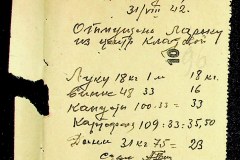 31/VIII 42.
Отпущено Ларьку
из центр. Кладовой
10
Луку 18 кг 1 м 18 кг.
48 33 16
Капуста 100 33
Картофель 109 : 33 = 35,50
Дыни 31 кг 75 = 23